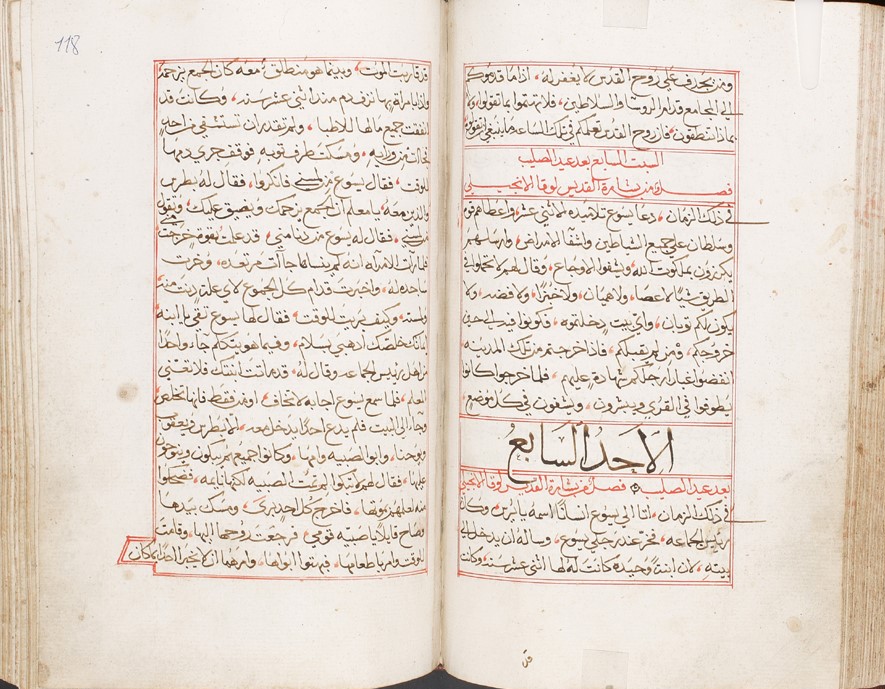 ومن يجدف على روح القدس لا يغفر له، اذا ما قدموكم
الى المجامع قدام الروسا والسلاطين، فلا تهتموا بما تقولوا
بماذا تنطقون، فان روح القدس تعلمكم في تلك الساعه ما ينبغي ان تقولوه
السبت السابع بعد عيد الصليب
فصل من بشارة القديس لوقا الانجيلي
في ذلك الزمان، دعا يسوع تلاميذه الاثني عشر، واعطاهم قوه
وسلطان على جميع الشياطين واشفا الامراض، وارسلهم
يكرزون بملكوت الله، ويشفوا الاوجاع، وقال لهم لا تحملوا في
الطريق شيا لا عصا، ولا هميان، ولا خبزا، ولا فضه، ولا
يكون لكم ثوبان، واي بيت دخلتموه، فكونوا فيه الى حين
خروجكم، ومن لم يقبلكم، فاذا خرجتم من تلك المدينه
انفضوا غبار ارجلكم شهادة عليهم، فلما خرجوا كانوا
يطوفوا في القرى ويبشرون، ويشفون في كل موضع
الاحد السابع
بعد عيد الصليب فصل من بشارة القديس لوقا الانجيلي
في ذلك الزمان، اتا الى يسوع انسانا اسمه يايرس، وكان
رئيس الجماعه، فخر عند رجلي يسوع، وساله ان يدخل الى
بيته، لان ابنة وحيده كانت له لها اثنى عشر سنه، وكانت
قد
118
قد قاربت الموت، وبينما هو منطلق معه كان الجمع يزحمه
واذا بامراة بها نزف دم منذ اثنى عشر سنه، وكانت قد
انفقت جميع مالها للاطبا، ولم تقدر ان تستشفي من احد
فجات من ورايه، ومسكت طرف ثوبه فوقف جري دمها
للوقت، فقال يسوع من لمسني فانكروا، فقال له بطرس
والذين معه، يا معلم ان الجمع يزحمك ويضيق عليك، وتقول
من لمسني، فقال له يسوع من دنا مني، قد علمت بقوة خرجت مني
فلما رات الامراه انه لم ينساها جاات مرتعده، وخرت
ساجده له، واخبرت قدام كل الجموع لاي علة دنت منه
ولمسته، وكيف بريت للوقت، فقال لها يسوع ثقي يا ابنه
ايمانك خلصك اذهبي بسلام، وفيما هو يتكلم جاء واحدا
من اهل رئيس الجماعه وقال له، قد ماتت ابنتك فلا تعني
المعلم، فلما سمع يسوع اجابه لا تخاف، اومن فقط فانها تخلص
وجاء الى البيت فلم يدع احدا يدخل معه، الا بطرس ويعقوب
ويوحنا، وابو الصبيه وامها، وكانوا جميعهم يبكون وينوحون
عليها، فقال لهم لا تبكوا لم تمت الصبيه لكنها نايمه، فضحكوا
منه لعلمهم بموتها، فاخرج كل احد برى، ومسك بيدها
وصاح قايلا يا صبيه قومي، فرجعت روحها اليها، وقامت
للوقت وامر باطعامها، فبهتوا ابواها، وامرهما ان لا يخبرا احدا بما كان